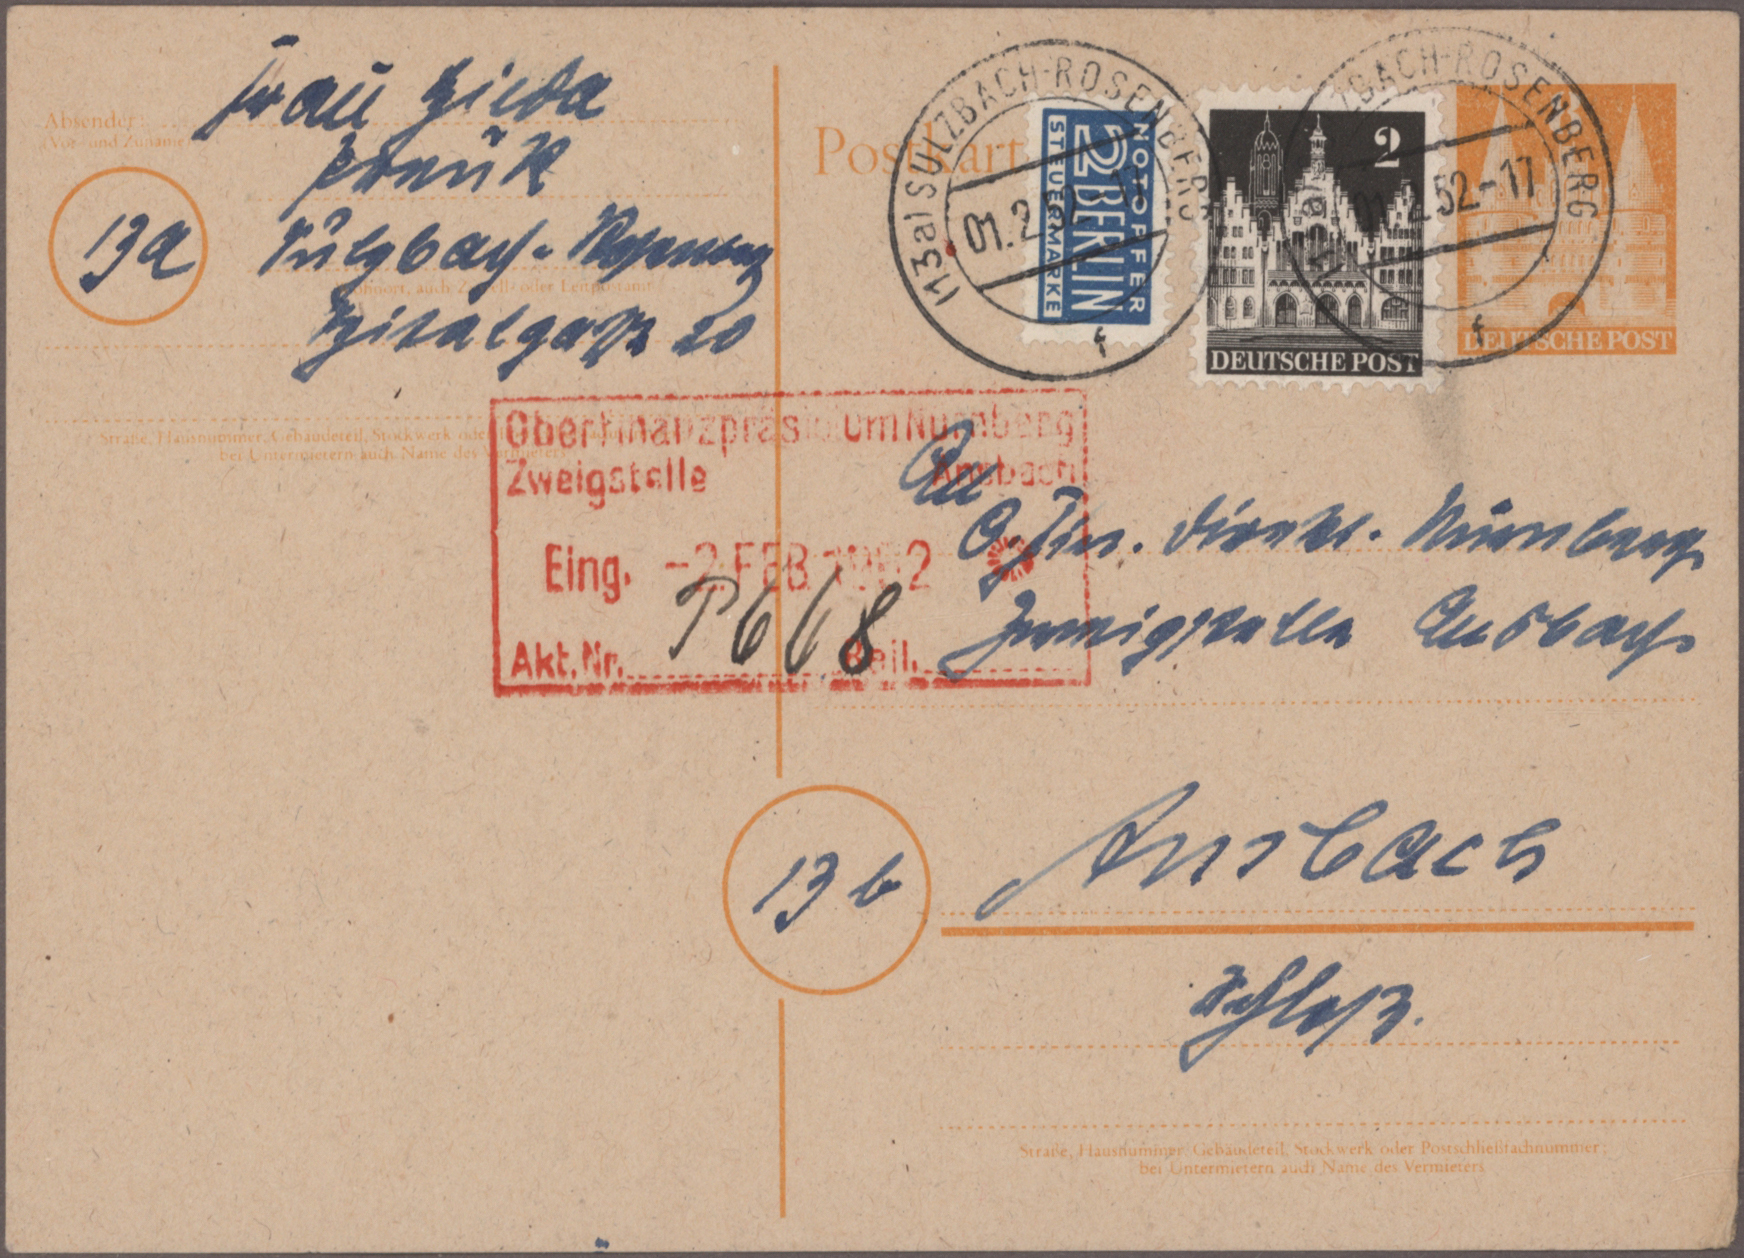 Absender:
(Vor- und Zuname)
Frau Hilda
13a
Sulzbach-Rosenberg
Wohnort, auch Zustell- oder Leitpostamt
Spitalgasse 20
Straße, Hausnummer, Gebäudeteil, Stockwerk oder
bei Untermietern auch Name des Vermieters
Postkarte
(13a) SULZBACH-ROSENBERG
01.2.52-17
f
NOTOPFER
2 BERLIN
STEUERMARKE
2
DEUTSCHE POST
SULZBACH-ROSENBERG
01.2.52-17
f
DEUTSCHE POST
Oberfinanzpräsidium Nürnberg
Zweigstelle Ansbach
Eing. -2.FEB.1952
P668
Akt.Nr. Beil.
An
O. Fin. Direkt. Nürnberg
Zweigstelle Ansbach
13b
Ansbach
Schloß.
Straße, Hausnummer, Gebäudeteil, Stockwerk oder Postschließfachnummer;
bei Untermietern auch Name des Vermieters